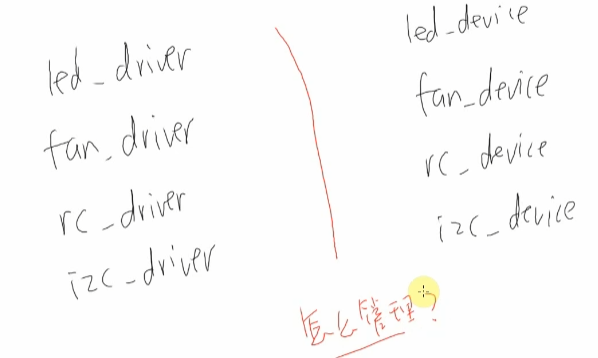 led_driver
fan_driver
rc_driver
i2c_driver
led_device
fan_device
rc_device
i2c_device
怎么管理?